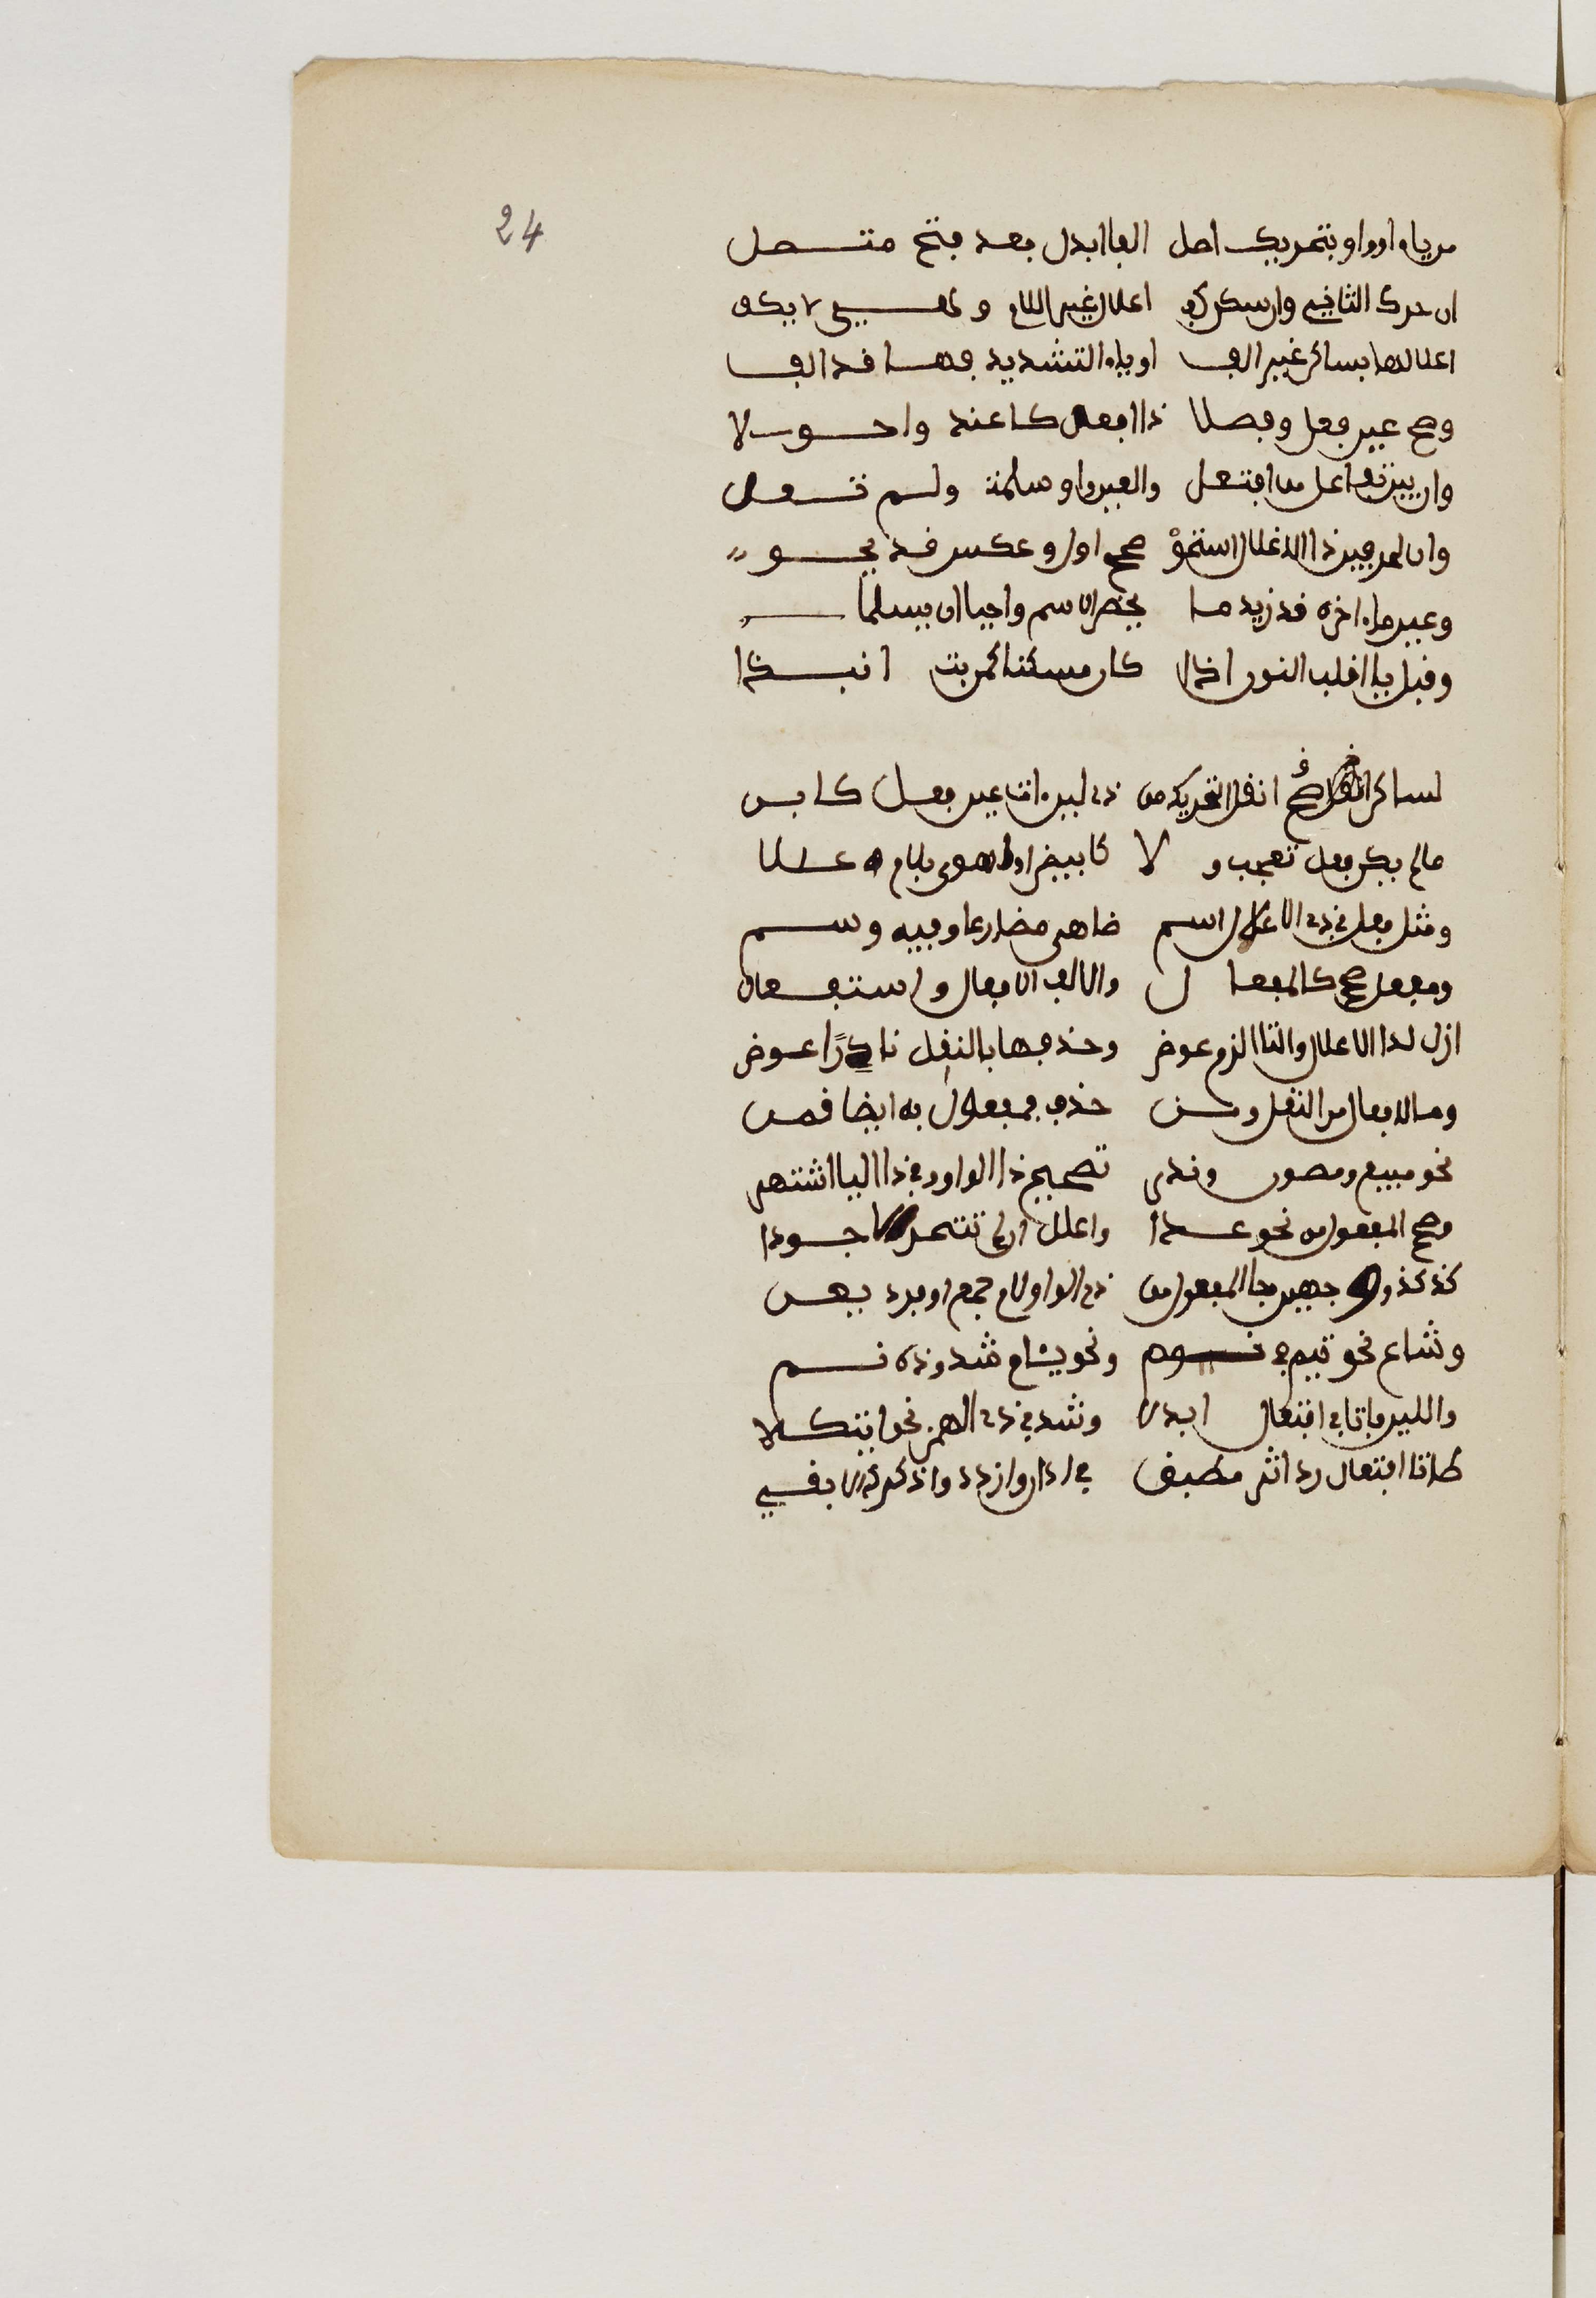 24
من ياء او واو بتحريك اصل الفا ابدل بعد فتح متصل
ان حرك الثاني وان سكن كف اعلال غير اللام وهي لا يكف
اعلالها بساكن غير الف او ياء التشديد فيها قد الف
وصح عين فعل وفعلا ذا افعل كاغيد واحولا
وان يبن تفاعل من افتعل والعين واو سلمت ولم تعل
وان لحرفين ذا الاعلال استحق صحح اول وعكس قد يحق
وعين ما اخره قد زيد ما يخص الاسم واجبا ان يسلما
وقبل با اقلب النون اذا كان مسكنا كمن بت انبذا
لساكن صح انقل التحريك من ذي لين ات عين فعل كابن
ما لم يكن فعل تعجب ولا كابيض او اهوى بلام عللا
ومثل فعل في ذي الاعلال اسم ضاهى مضارعا وفيه وسم
ومفعل صحح كالمفعال والالف الافعال واستفعال
ازل لذا الاعلال والتا الزم عوض وحذفها بالنقل نادرًا عرض
وما لافعال من النقل ومن حذف فمفعول به ايضا قمن
نحو مبيع ومصون وندر تصحيح ذا الواو وفي ذا اليا اشتهر
وصح المفعول من نحو عدا واعلل ان لم تتحر الاجودا
كذاك ذو وجهين جا المفعول من ذي الواو لام جمع او فرد يعن
وشاع نحو نيم في نوم ونحو نيام شذوذه نمي
واللين فا تا في افتعال ابدلا وشذ في ذي الهمز نحو ايتكلا
طا تا افتعال رد اثر مطبق في ادان وازدد وادكر دالا بقي